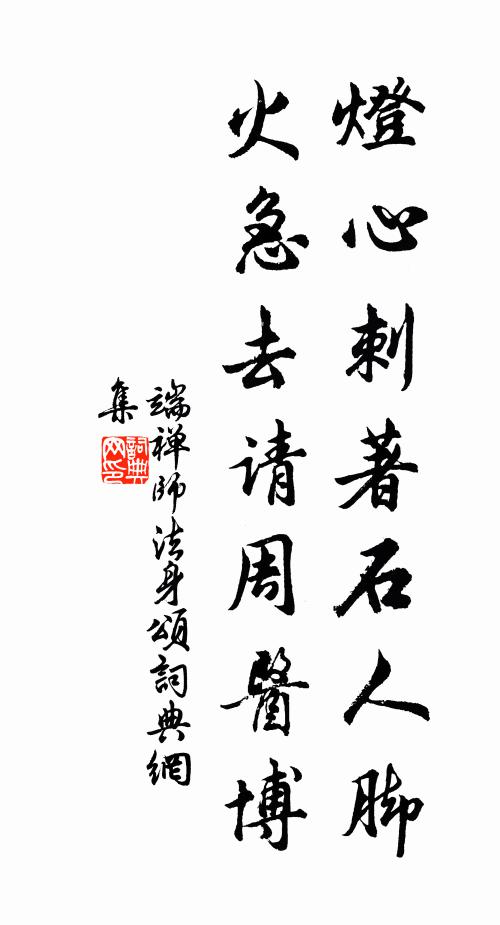 燈心刺著石人脚
火急去请周醫博
端禅師法身頌詞典網
集
詞典网印